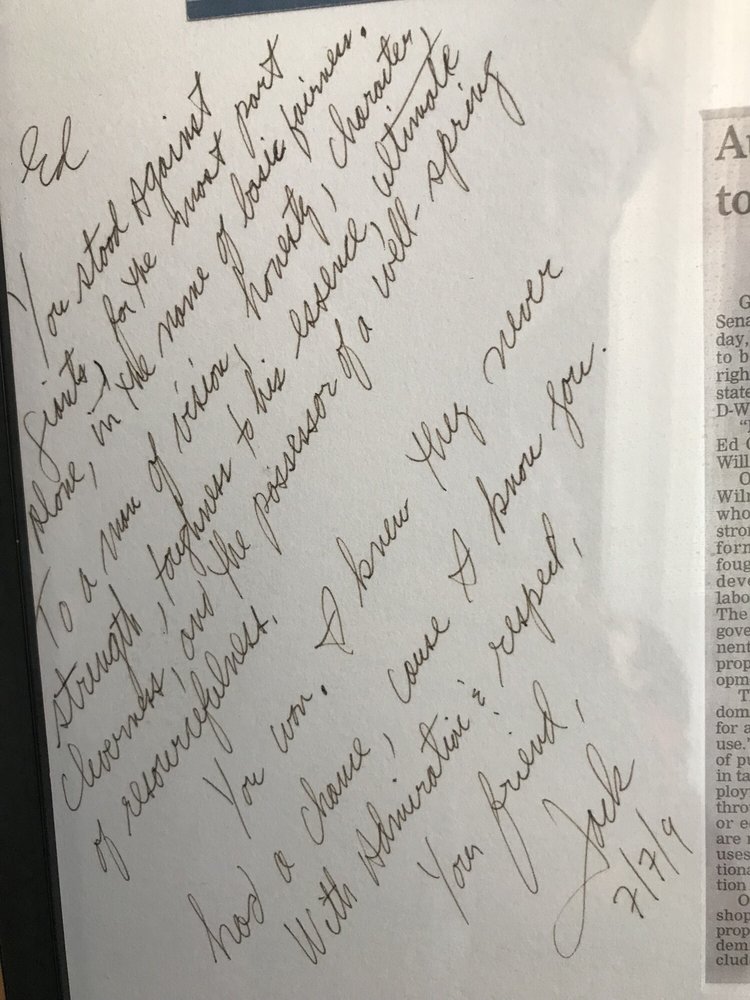 Ed
You stood Against
giants, for the most part
alone, in the name of basic fairness.
To a man of vision, honesty, character,
strength, toughness to his essence, ultimate
cleverness, and the possessor of a well-spring
of resourcefulness.
You won. I knew they never
had a chance, cause I know you.
With Admiration & respect,
Your friend,
Jack
7/7/9
A
to
G
Sena
day,
to b
righ
state
D-W
Ed
Will
O
Wilm
who
stro
form
foug
deve
labo
The
gove
nent
prop
opm
T
dom
for a
use."
of pu
in ta
ploy
thro
or e
are
uses
tiona
tion
O
shop
prop
dem
clud